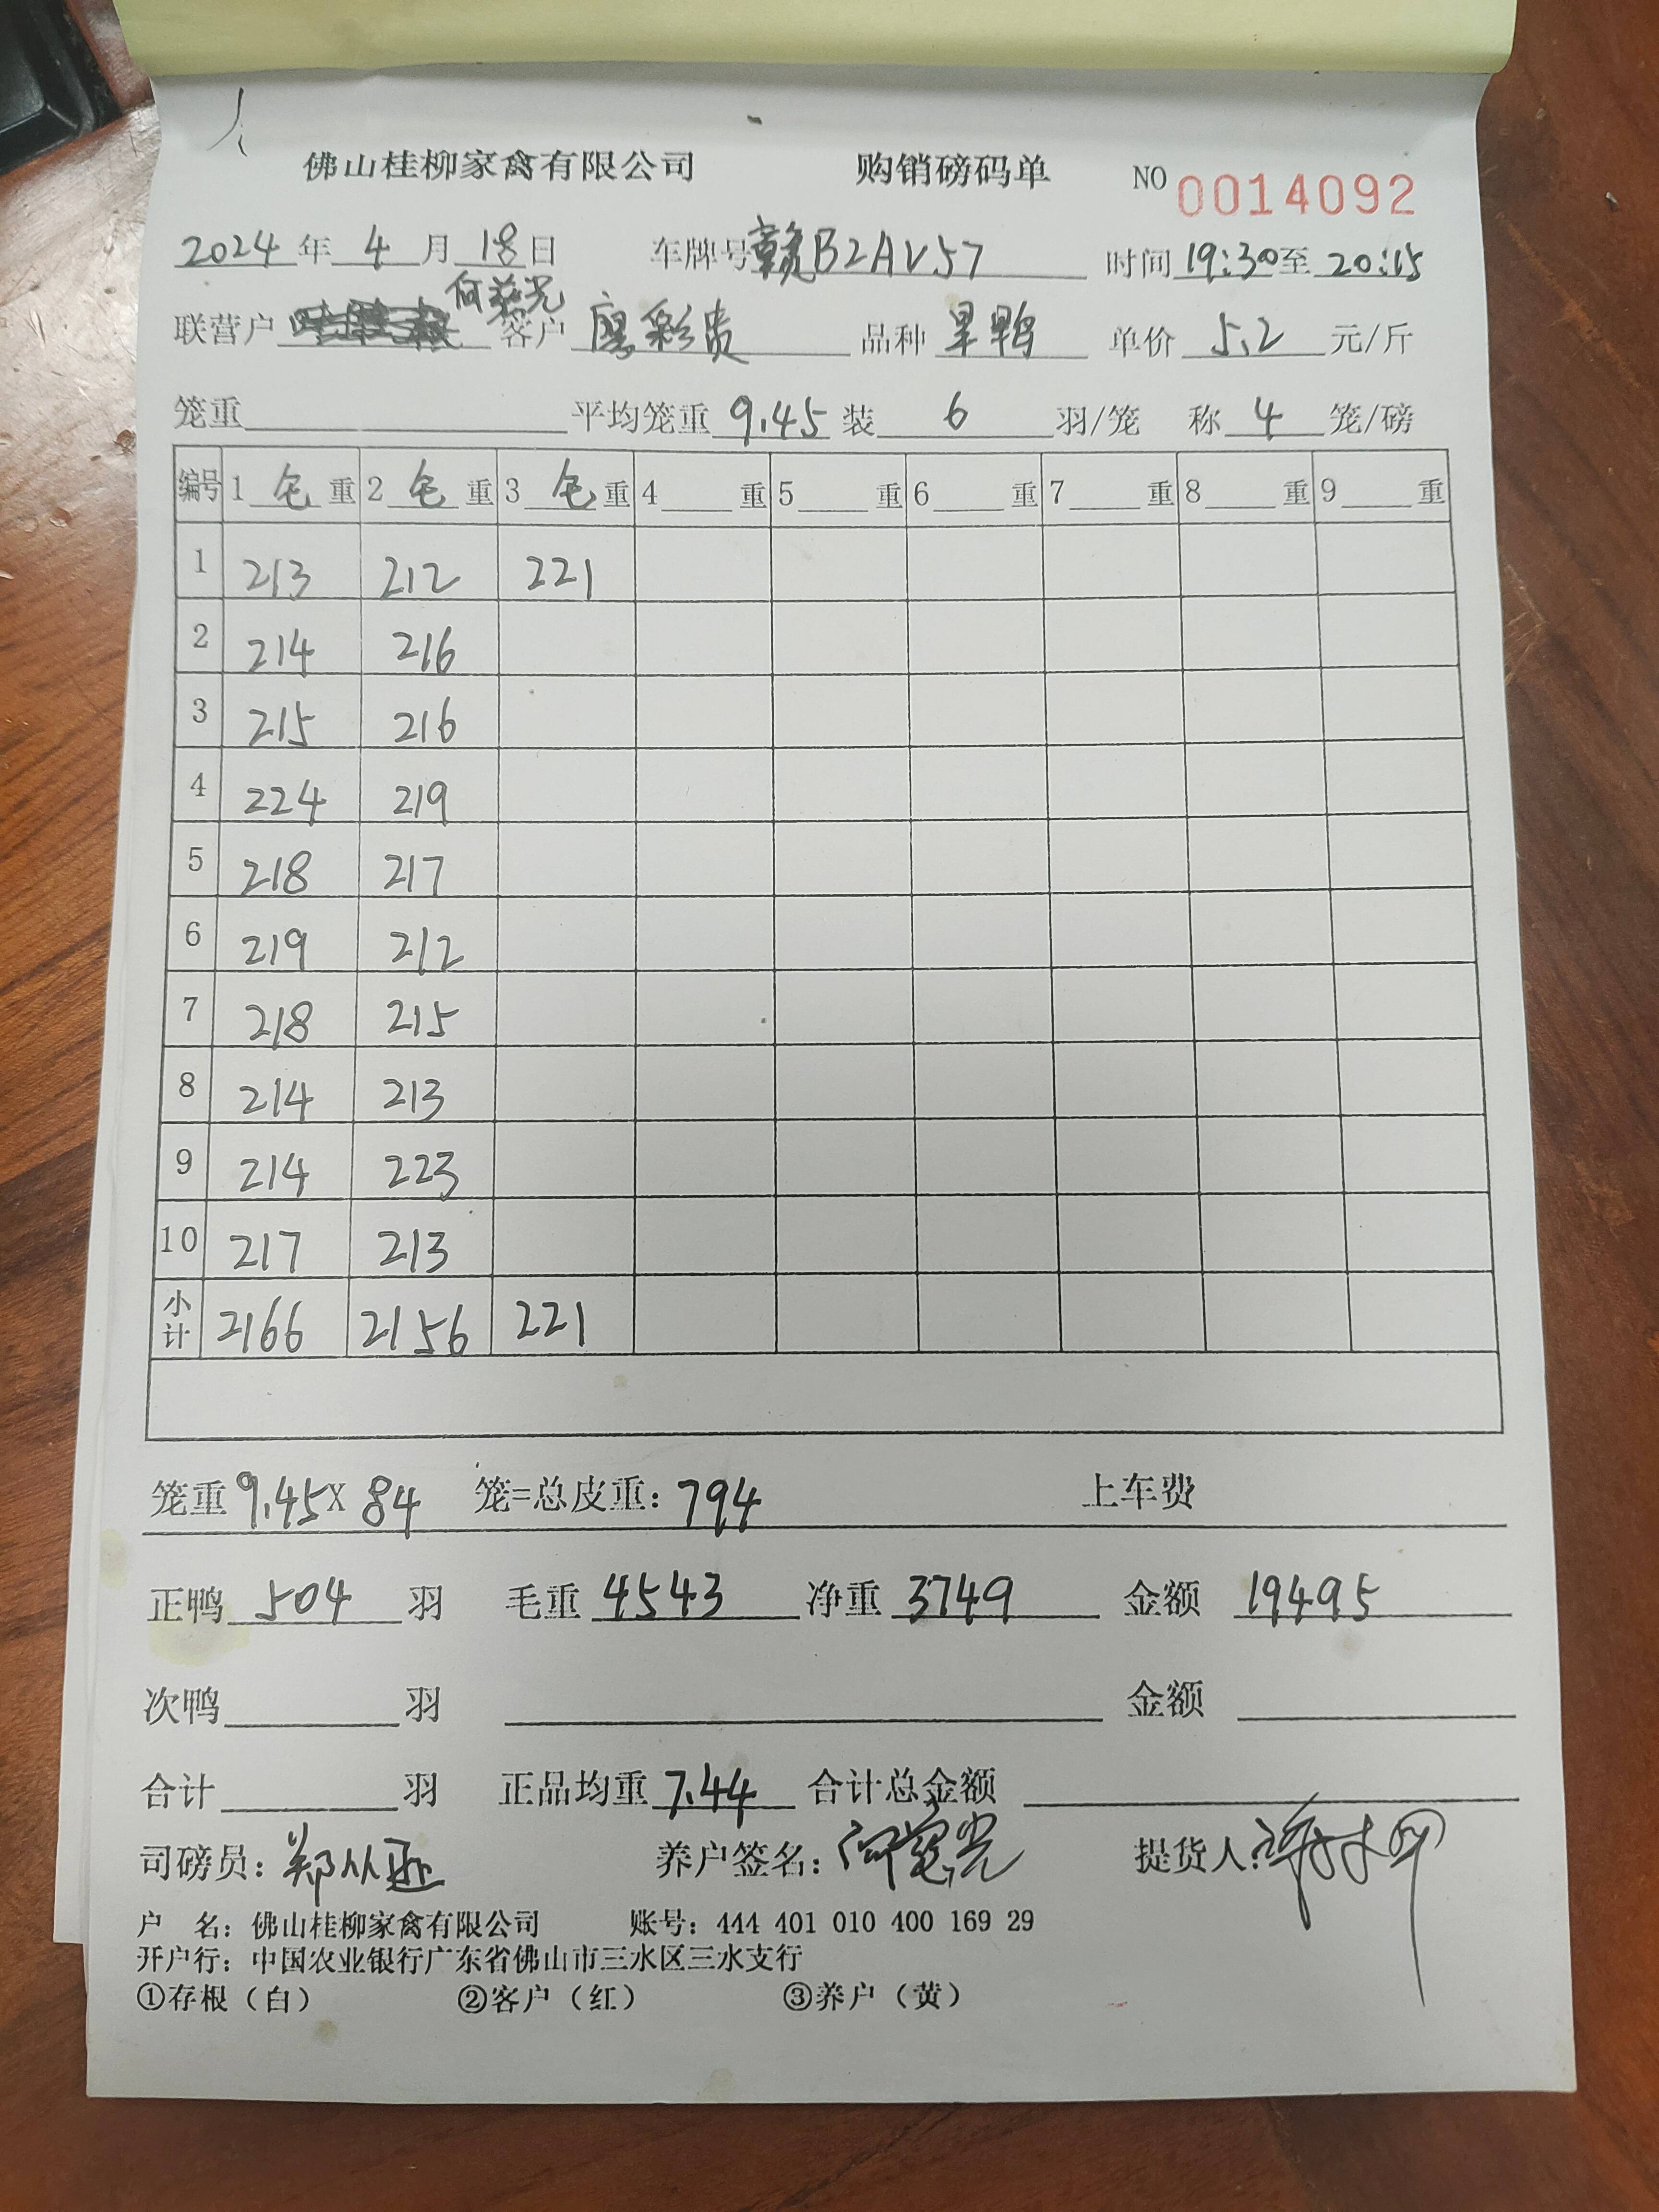 佛山桂柳家禽有限公司 购销磅码单 NO 0014092
2024年4月18日 车牌号赣B2AV57 时间19:30至20:15
联营户 客户 廖彩贵 品种 单价 5.2 元/斤
笼重 平均笼重 9.45 装 6 羽/笼 称 4 笼/磅
编号 1 毛 重 2 毛 重 3 毛 重 4 重 5 重 6 重 7 重 8 重 9 重
1 213 212 221
2 214 216
3 215 216
4 224 219
5 218 217
6 219 212
7 218 215
8 214 213
9 214 223
10 217 213
小计 2166 2156 221
笼重 9.45 X 84 笼=总皮重: 794 上车费
正鸭 504 羽 毛重 4543 净重 3749 金额 19495
次鸭 羽 金额
合计 羽 正品均重 7.44 合计总金额
司磅员: 郑从 养户签名: 提货人:
户 名: 佛山桂柳家禽有限公司 账号: 444 401 010 400 169 29
开户行: 中国农业银行广东省佛山市三水区三水支行
①存根(白) ②客户(红) ③养户(黄)